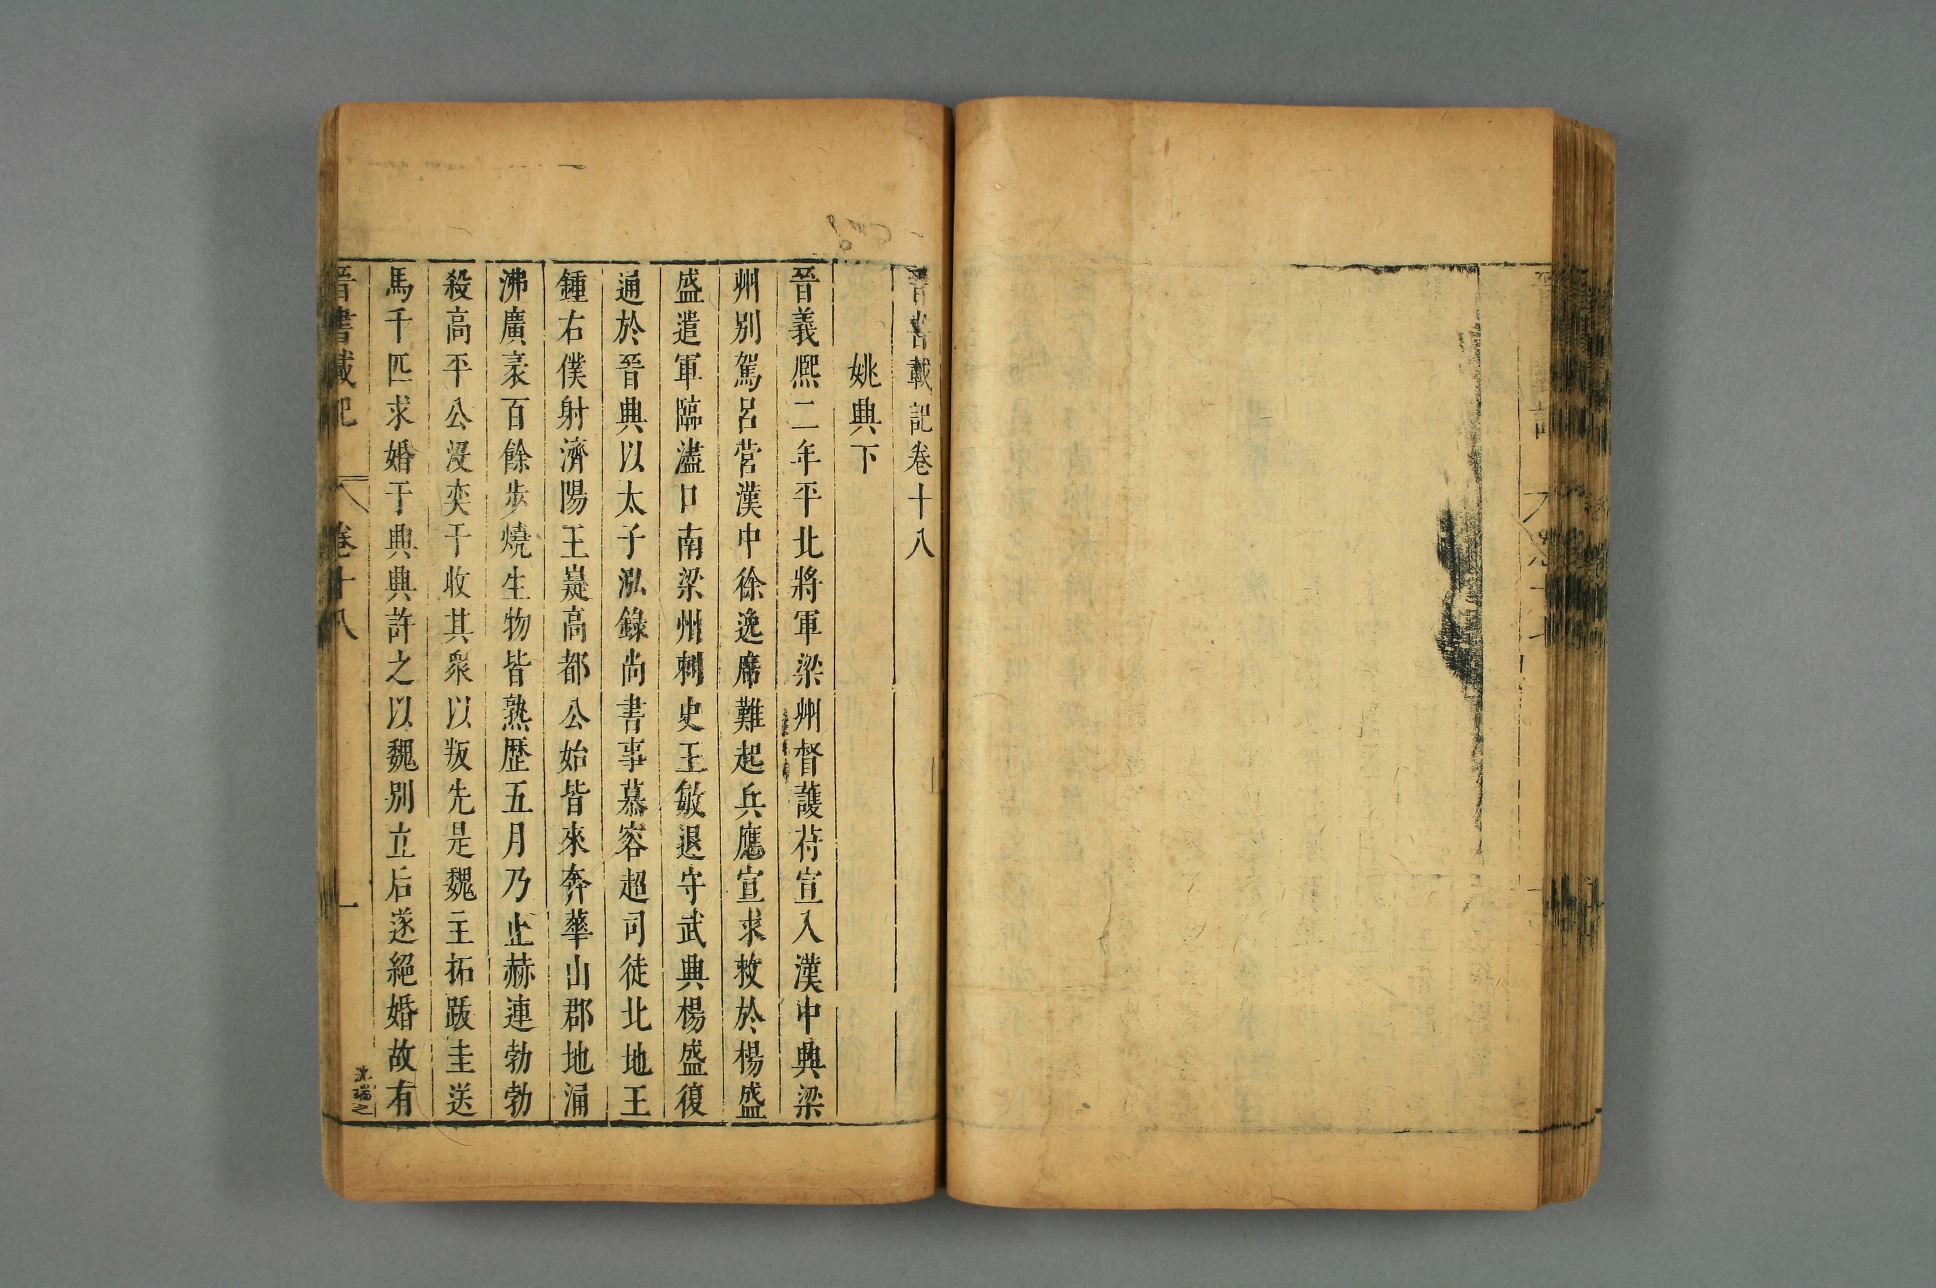 晉書載記卷十八
姚興下
晉義熙二年平北將軍梁州督護苻宣入漢中興梁
州別駕呂營漢中徐逸席難起兵應宣求救於楊盛
盛遣軍臨濜口南梁州刺史王敏退守武興楊盛復
通於晉興以太子泓錄尚書事慕容超司徒北地王
鍾右僕射濟陽王嶷高都公始皆來奔華山郡地涌
沸廣袤百餘步燒生物皆熟歷五月乃止赫連勃勃
殺高平公沒奕干收其衆以叛先是魏主拓跋圭送
馬千匹求婚于興興許之以魏別立后遂絕婚故有
晉書載記
卷十八
一